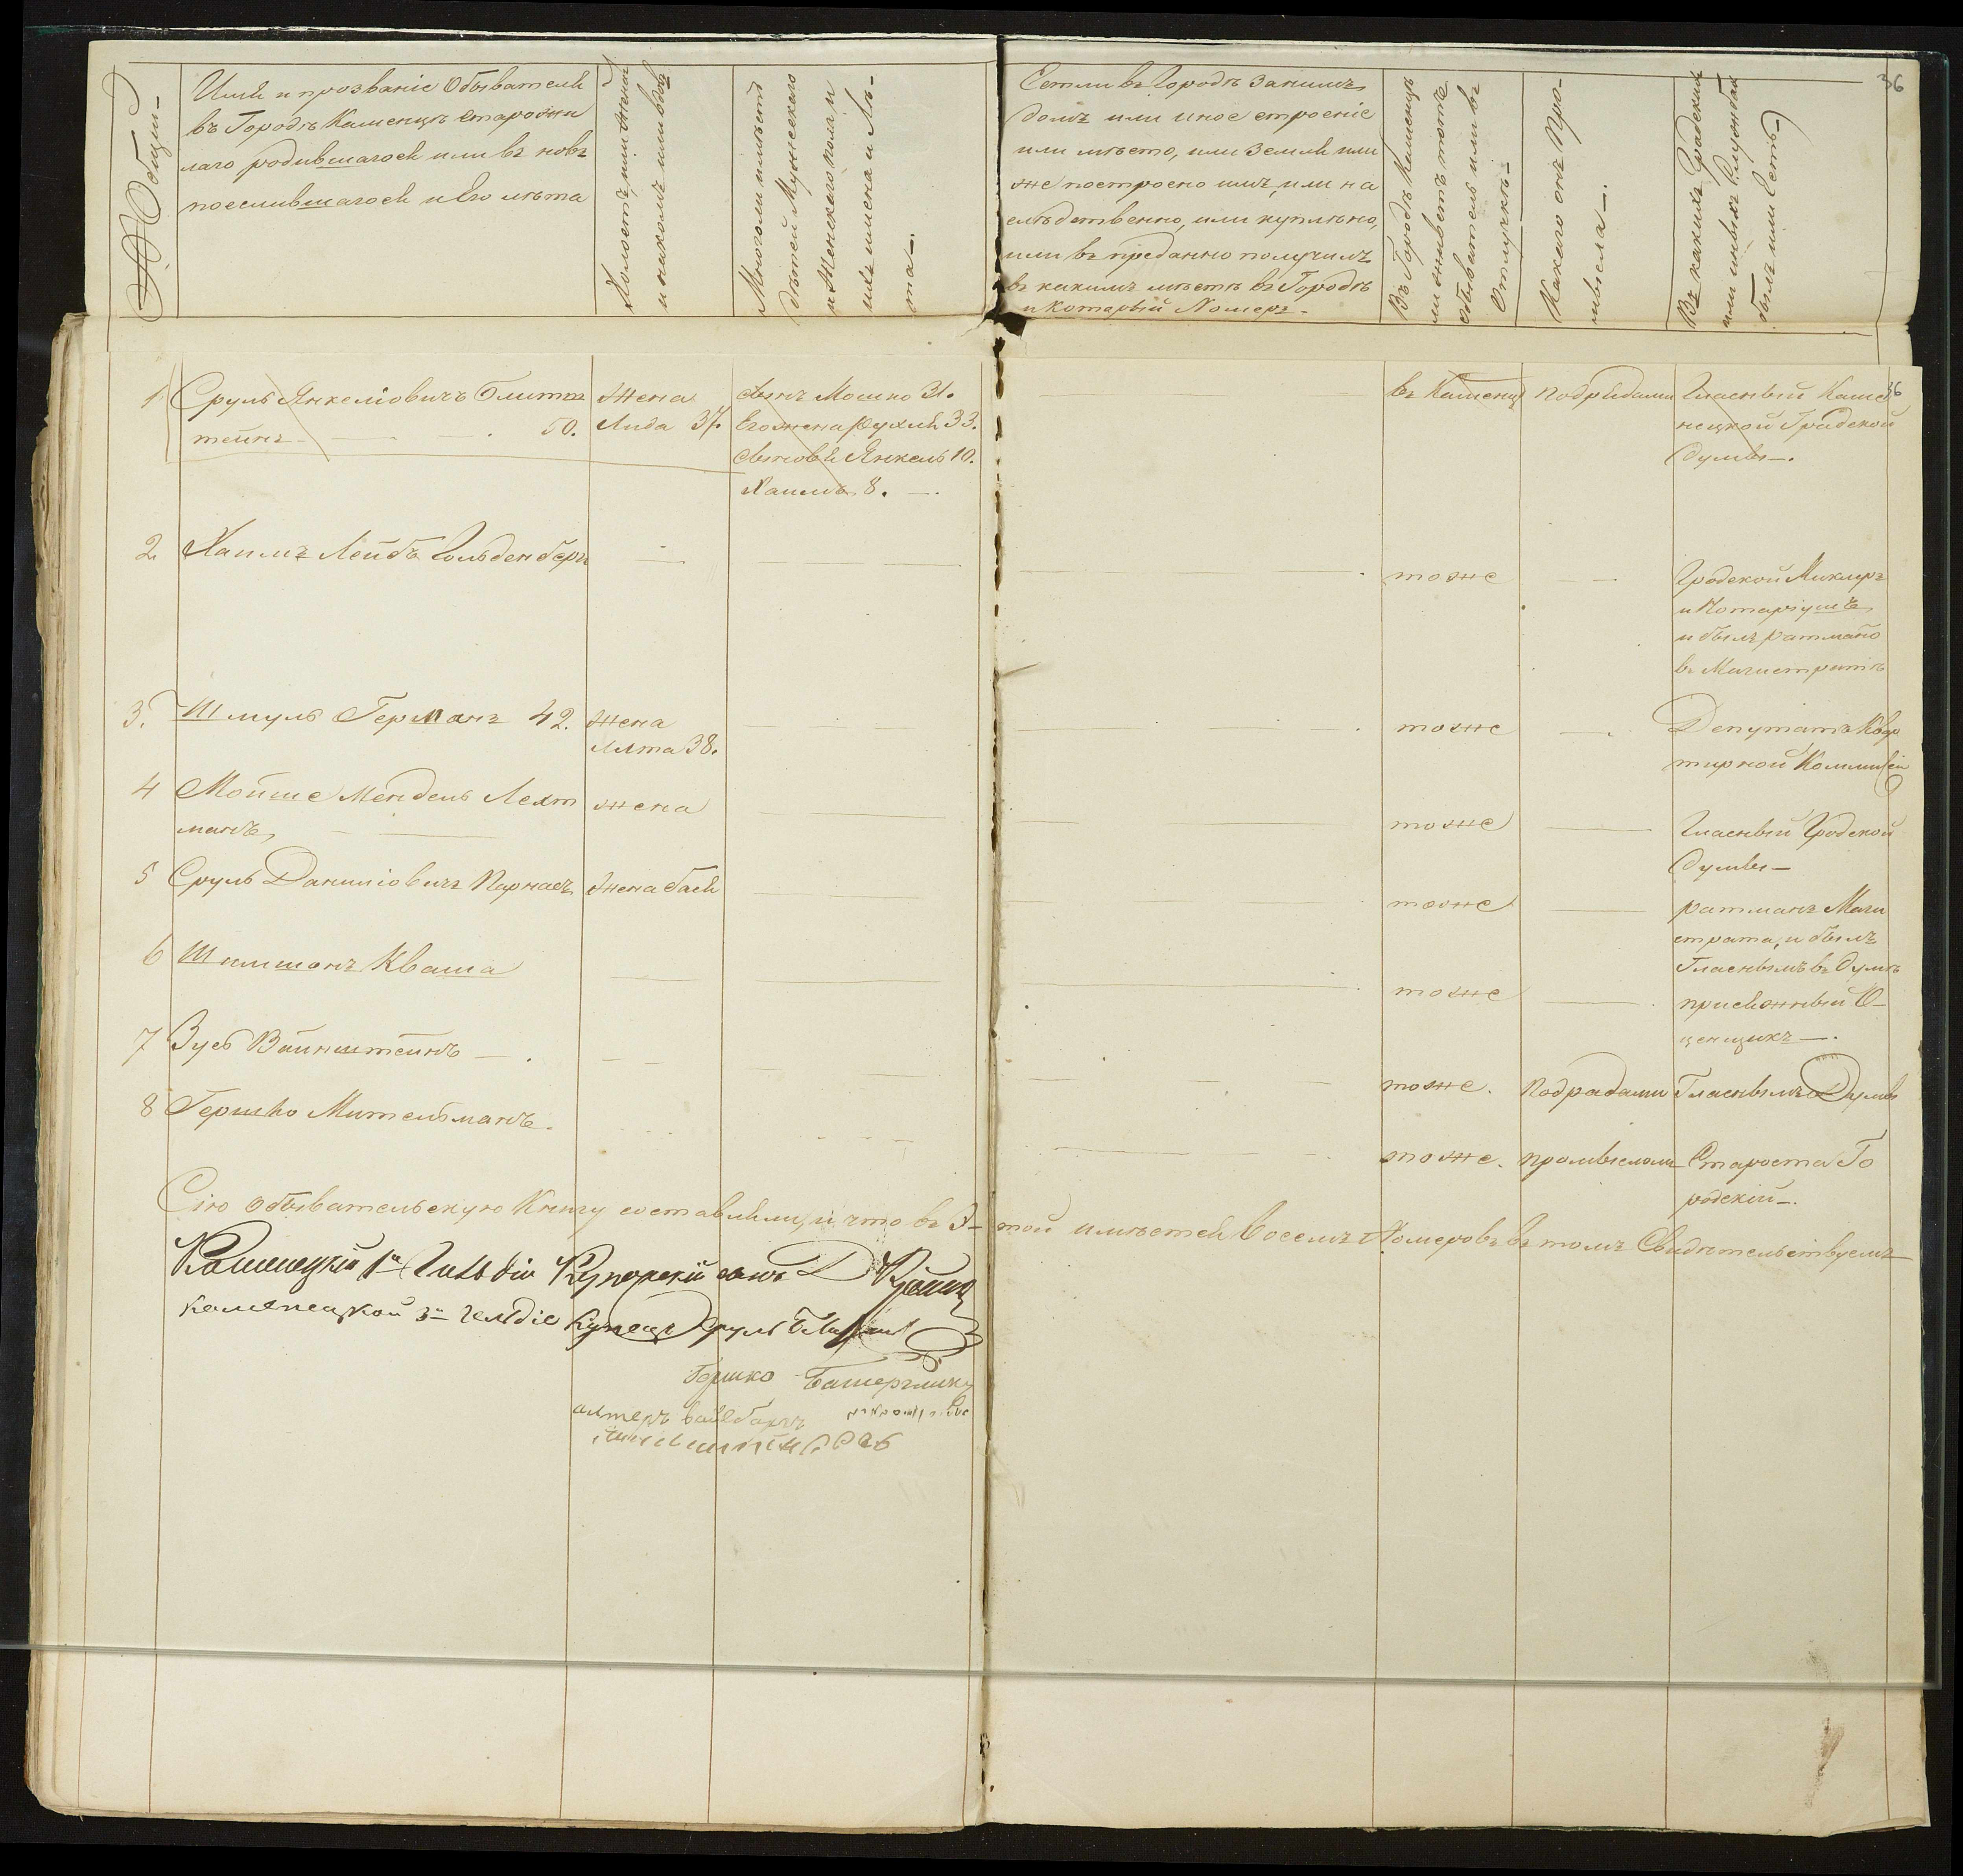 № Общи-
Имя и прозваніе Обывателя
въ Городѣ Каменцѣ старожи
лаго родившагося или въ новѣ
поселившагося и Его лѣта
Холостъ, или женатъ
и на комъ или вдовъ
Много ли имѣетъ
дѣтей Мужескаго
и Женскаго пола, и
ихъ имена и Лѣ-
та-.
Естли въ Городѣ за нимъ
домъ или иное строеніе
или мѣсто, или Земля или
же построено имъ, или на
слѣдственно, или куплѣно,
или въ преданно получилъ
въ какимъ мѣстѣ въ Городѣ
и которій Номеръ-
Въ Городѣ Каменцѣ
ли живетъ тотъ
обыватель или въ
Отлучкѣ-
Какого онъ Про-
мысла-.
Въ какихъ Градскихъ
или иныхъ Службахъ
былъ или Есть-
36
1 Сруль Янкеліовичъ Блитш
тейнъ — —. 50.
Жена
Лида 37.
Сынъ Мошко 31.
Его жена Рухля 33.
Сыновя Янкель 10.
Хаимъ 8. —.
въ Каменцѣ
подрядами
Гласный Каме 36
нецкой Градской
Думы-.
2 Хаимъ Лейбъ Гольденберг
тоже
Градской Маклеръ
и Нотаріушъ,
и былъ ратманъ
въ Магистратѣ
3. Шмуль Германъ 42.
жена
Элта 38.
тоже
Депутатъ Квар
тирной Коммисіи
4 Мойше Мендель Лехт
манъ,
жена
тоже
Гласный Градской
Думы-
5 Сруль Даниліовичъ Парнасъ
жена Бася
тоже
ратманъ Маги
страта, и былъ
Гласнымъ въ Думѣ
6 Шимшонъ Кваша
тоже
присяжный О-
ценщикъ-.
7 Зусь Вайнштейнъ —.
тоже.
Подрядами
Гласнымъ Думы
8 Гершко Мительманъ.
тоже.
промысломъ
Староста Го
родскій-.
Сію Обывательскую Книгу составляли, и что въ Э- той имѣется восемь Номеровъ въ томъ Свидѣтельствуемъ
Каменецкій 1й Гильдіи Купецкій сынъ Д
каменецкой 3й гильдіе Купецъ Сруль
Гершко
алтеръ